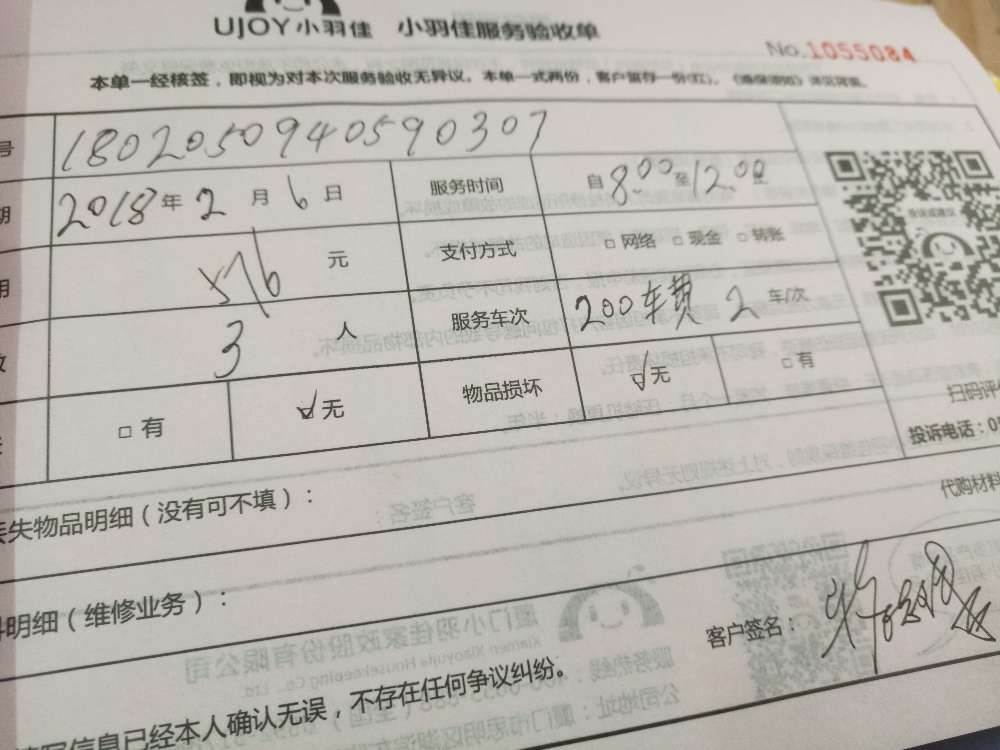 UJOY小羽佳 小羽佳服务验收单
No.1055084
本单一经核签，即视为对本次服务验收无异议。本单一式两份，客户留存一份(红)。
号 1802050940590307
期 2018年2月6日 服务时间 自8:00至12:00止
用 576元 支付方式 □网络 □现金 □转账
数 3人 服务车次 200车费 2车/次
□有 ☑无 物品损坏 ☑无 □有
扫码评
投诉电话：05
丢失物品明细（没有可不填）：
代购材料
料明细（维修业务）：
客户签名：
填写信息已经本人确认无误，不存在任何争议纠纷。